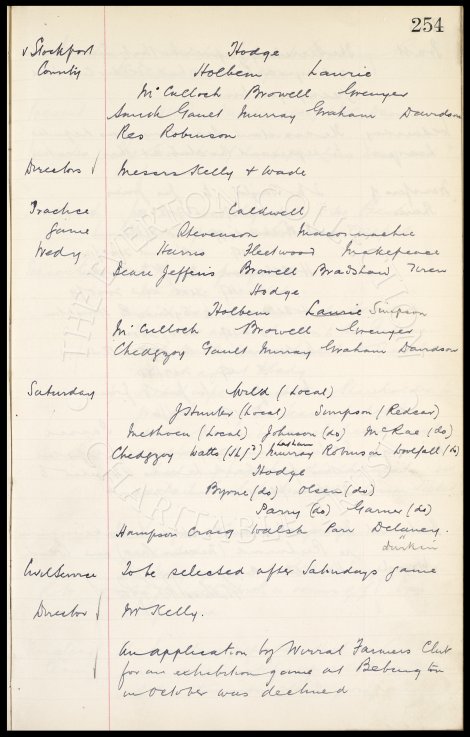 254
v Stockport Hodge
County Holbem Laurie
McCulloch Browell Grenyer
Smith Gault Murray Graham Davidson
Res Robinson
Directors Messrs Kelly & Wade
Practice Caldwell
game Stevenson Maconnachie
Wedy Harris Fleetwood Makepeace
Jeffris Browell Bradshaw
Hodge
Holbem Laurie Simpson
McCulloch Browell Grenyer
Chedgzoy Gault Murray Graham Davidson
Saturday Wild (Local)
J Hunter (Local) Simpson (Redcar)
Methven (Local) Johnson (do) McRae (do)
Chedgzoy Watts Murray Robinson Lovelfall (do)
Hodge
Byrne (do) Olsen (do)
Parry (do) Garner (do)
Hampson Craig Walsh Parr Delaney.
" Durkin
Civil Service To be selected after Saturdays game
Director Mr Kelly.
An application by Wirral Farmers Club
for an exhibition game at Bebington
in October was declined